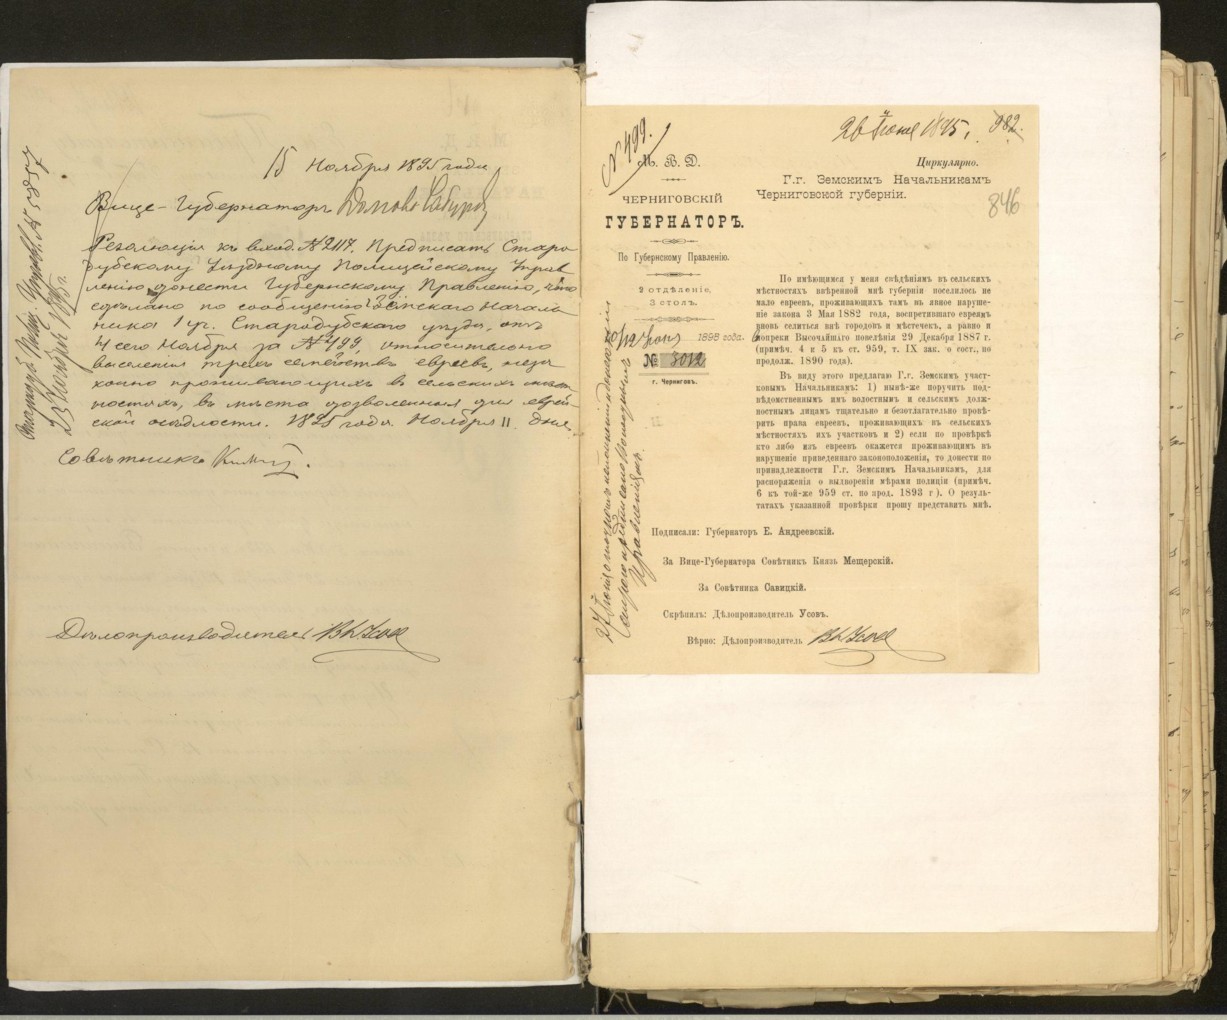 15 Ноября 1895 года
Вице-Губернаторъ
Резолюція къ вход. № 2117. Предписать Старо
дубскому Уѣздному Полицейскому Управ
ленію донести Губернскому Правленію, что
сдѣлано по сообщенію Земскаго Началь
ника 1 уч. Стародубскаго уѣзда, отъ
4 сего Ноября за № 499, относительно
выселенія трехъ семействъ евреевъ, неза
конно проживающихъ въ сельскихъ мѣст
ностяхъ, въ мѣста дозволенныя для еврей-
ской осѣдлости. 1895 года Ноября 11 дня.
Совѣтникъ
Дѣлопроизводитель
23 Ноября 1895 г.
№ 499.
26 Іюня 1895.
982.
846
М. В. Д.
ЧЕРНИГОВСКІЙ
ГУБЕРНАТОРЪ.
По Губернскому Правленію.
2 отдѣленіе,
3 столъ.
1895 года.
№ 3012
г. Черниговъ.
Циркулярно.
Г.г. Земскимъ Начальникамъ
Черниговской губерніи.
По имѣющимся у меня свѣдѣніямъ въ сельскихъ
мѣстностяхъ ввѣренной мнѣ губерніи поселилось не
мало евреевъ, проживающихъ тамъ въ явное наруше-
ніе закона 3 Мая 1882 года, воспретившаго евреямъ
вновь селиться внѣ городовъ и мѣстечекъ, а равно и
вопреки Высочайшаго повелѣнія 29 Декабря 1887 г.
(примѣч. 4 и 5 къ ст. 959, т. IX зак. о сост., по
продолж. 1890 года).
Въ виду этого предлагаю Г.г. Земским участ-
ковымъ Начальникамъ: 1) нынѣ-же поручить под-
вѣдомственнымъ имъ волостнымъ и сельскимъ долж-
ностнымъ лицамъ тщательно и безотлагательно провѣ-
рить права евреевъ, проживающихъ въ сельскихъ
мѣстностяхъ ихъ участковъ и 2) если по провѣркѣ
кто либо изъ евреевъ окажется проживающимъ въ
нарушеніе приведеннаго законоположенія, то донести по
принадлежности Г.г. Земскимъ Начальникамъ, для
распоряженія о выдвореніи мѣрами полиціи (примѣч.
6 къ той-же 959 ст. по прод. 1893 г). О резуль-
татахъ указанной провѣрки прошу представить мнѣ.
Подписали: Губернаторъ Е. Андреевскій.
За Вице-Губернатора Совѣтникъ Князь Мещерскій.
За Совѣтника Савицкій.
Скрѣпилъ: Дѣлопроизводитель Усовъ.
Вѣрно: Дѣлопроизводитель